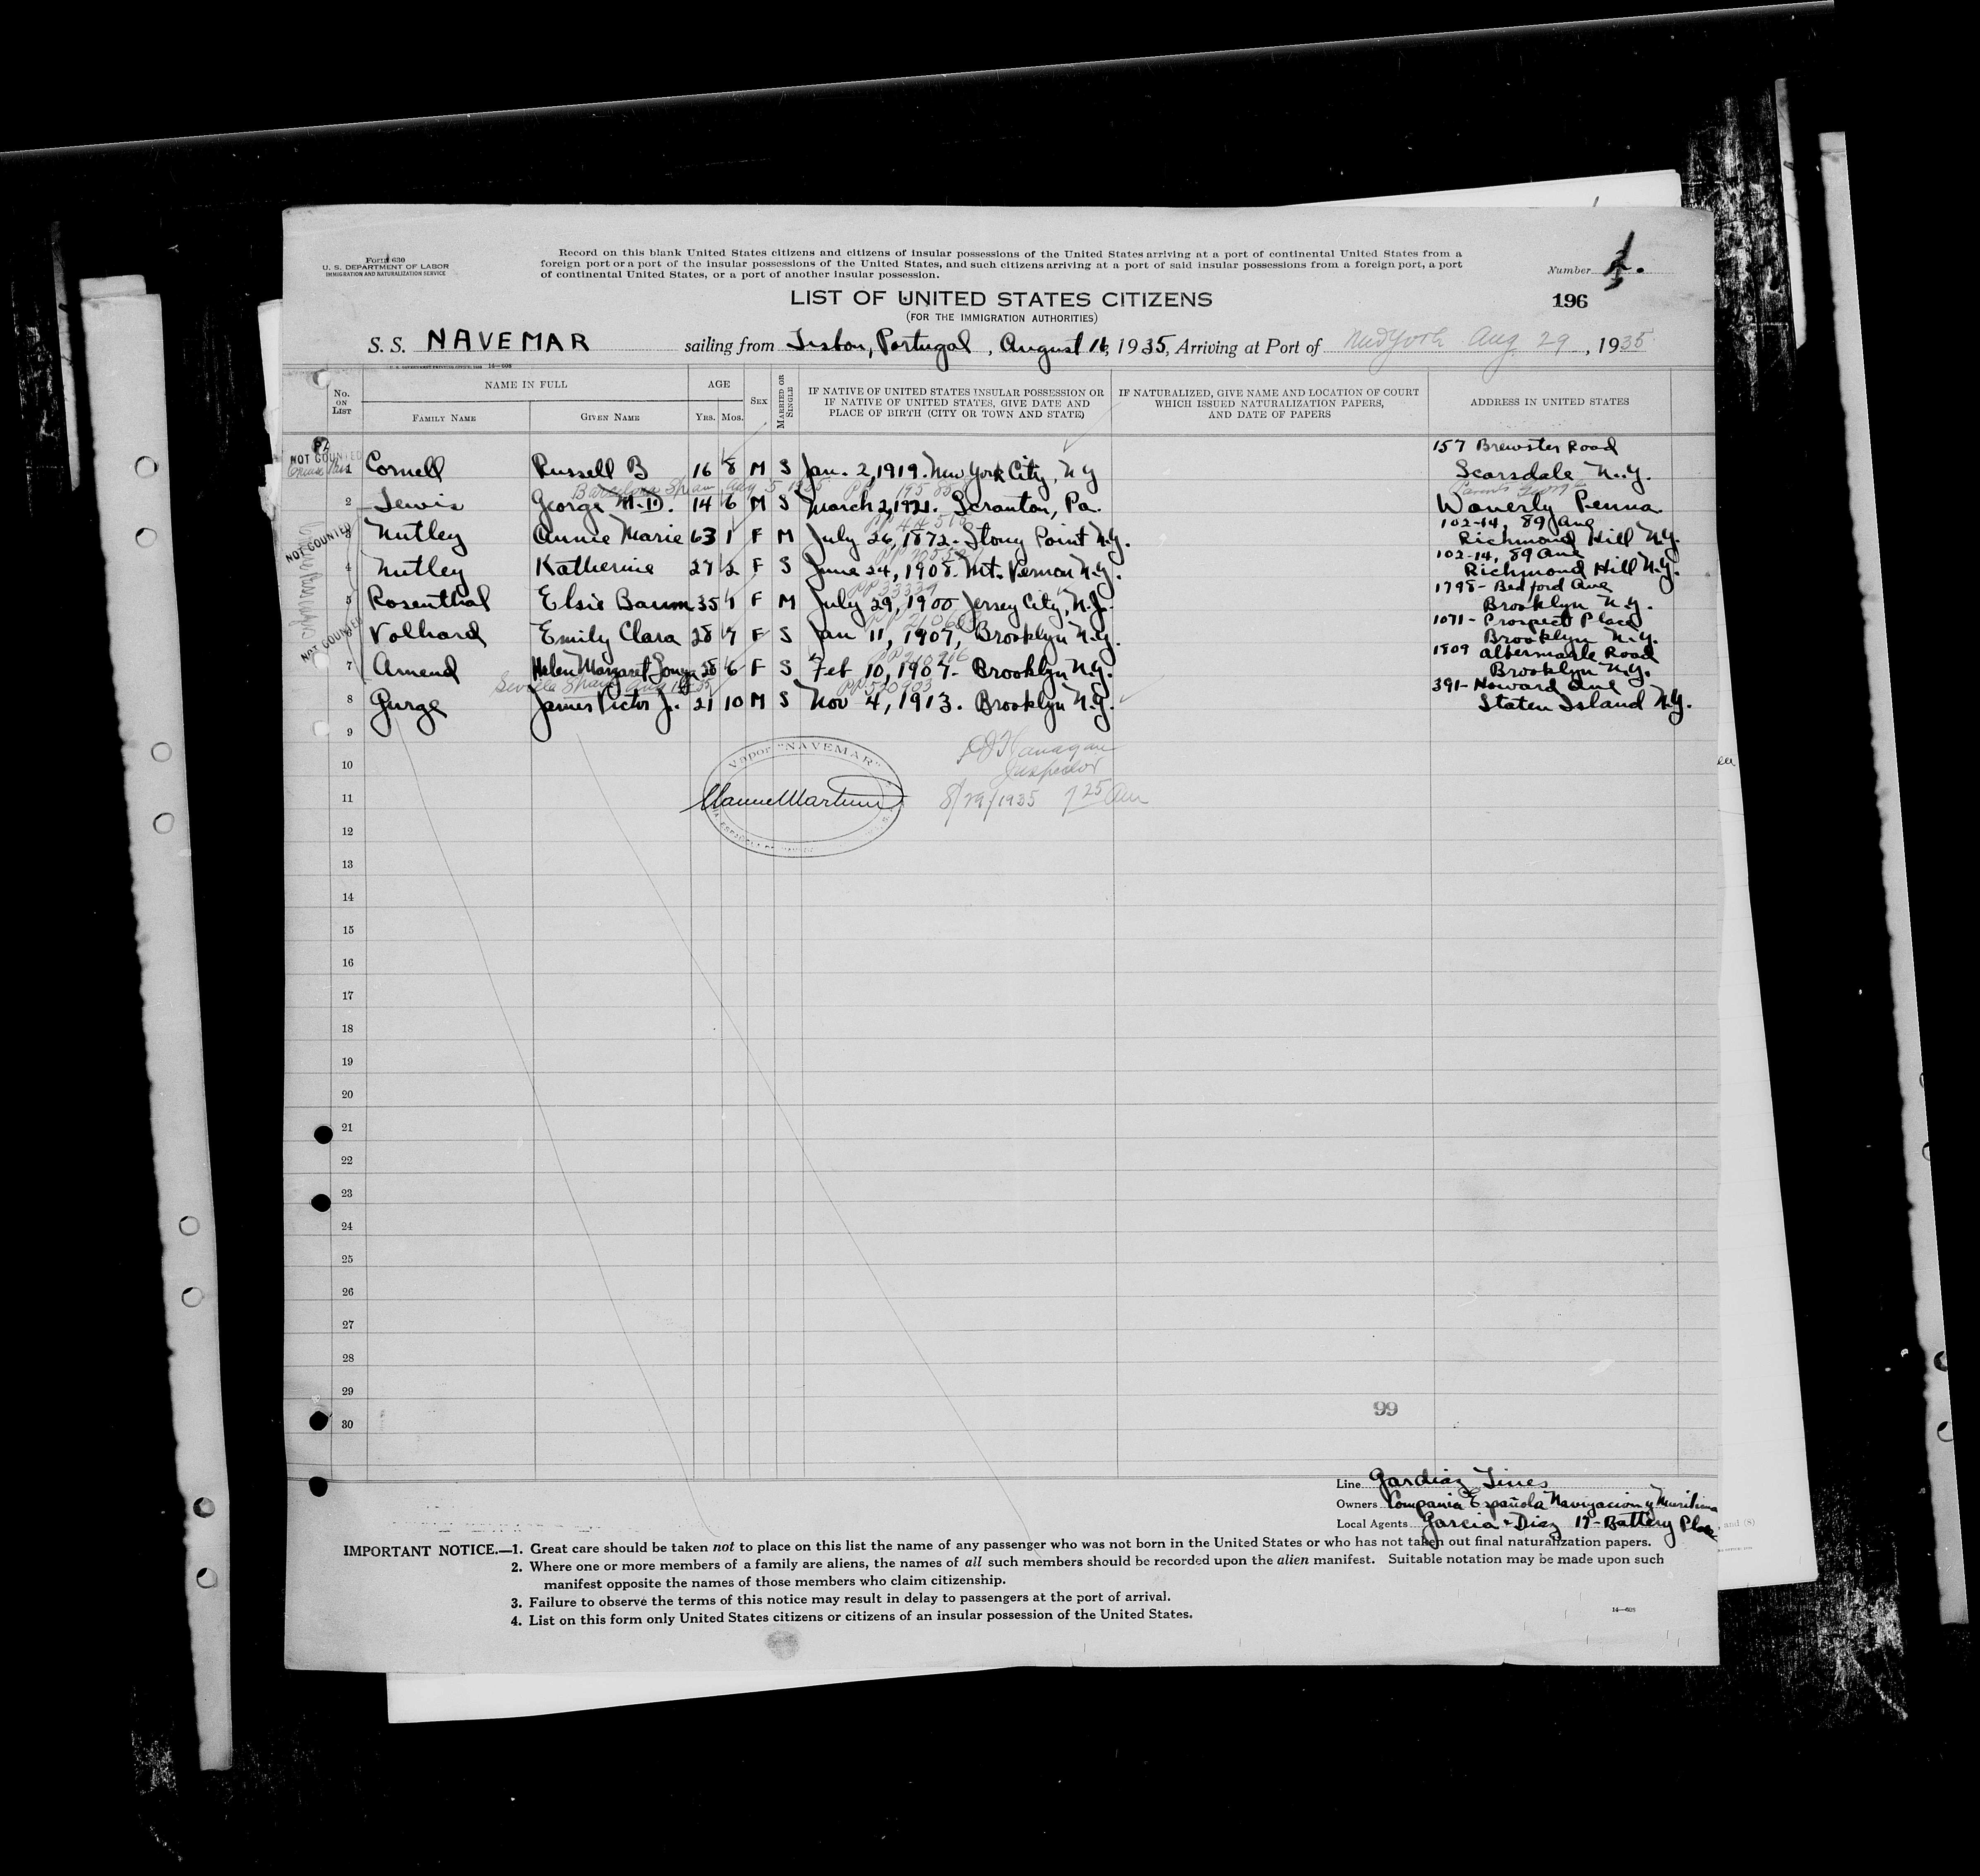 Form 630
U. S. DEPARTMENT OF LABOR
IMMIGRATION AND NATURALIZATION SERVICE
Record on this blank United States citizens and citizens of insular possessions of the United States arriving at a port of continental United States from a
foreign port or a port of the insular possessions of the United States, and such citizens arriving at a port of said insular possessions from a foreign port, a port
of continental United States, or a port of another insular possession.
Number
196
LIST OF UNITED STATES CITIZENS
(FOR THE IMMIGRATION AUTHORITIES)
S. S. NAVEMAR sailing from Lisbon, Portugal, August 16, 1935, Arriving at Port of New York Aug 29, 1935
No. ON LIST
NAME IN FULL
FAMILY NAME
GIVEN NAME
AGE
YRS. MOS.
SEX
MARRIED OR SINGLE
IF NATIVE OF UNITED STATES INSULAR POSSESSION OR
IF NATIVE OF UNITED STATES, GIVE DATE AND
PLACE OF BIRTH (CITY OR TOWN AND STATE)
IF NATURALIZED, GIVE NAME AND LOCATION OF COURT
WHICH ISSUED NATURALIZATION PAPERS,
AND DATE OF PAPERS
ADDRESS IN UNITED STATES
NOT COUNTED
157 Brewster Road
1 Cornell Russell B 16 8 M S Jan. 2, 1919. New York City, N Y Scarsdale N.Y.
Barcelona Spain Aug 5 1935
Parents George
2 Lewis George M.D. 14 6 M S March 2, 1921. Scranton, Pa. Waverly Penna
102-14, 89 Ave
NOT COUNTED
3 Nutley Annie Marie 63 1 F M July 26, 1872- Stony Point N.Y. Richmond Hill N.Y.
102-14, 89 Ave
4 Nutley Katherine 27 2 F S June 24, 1908. Mt. Vernon N.Y. Richmond Hill N.Y.
PP 33339
1798- Bedford Ave
5 Rosenthal Elsie Baum 35 1 F M July 29, 1900 Jersey City, N.J. Brooklyn N.Y.
1071- Prospect Place
NOT COUNTED
6 Volhard Emily Clara 28 7 F S Jan 11, 1907, Brooklyn N.Y. Brooklyn N.Y.
1809 Albermarle Road
7 Amend Helen Margaret 28 6 F S Feb 10, 1907- Brooklyn N.Y. Brooklyn N.Y.
Sevilla Spain Aug
PP 520903
391- Howard Ave
8 Gurge James Victor Jr. 21 10 M S Nov 4, 1913. Brooklyn N.Y. Staten Island N.Y.
9
10
11
12
13
14
15
16
17
18
19
20
21
22
23
24
25
26
27
28
29
30
Vapor "NAVEMAR"
Inspector
8/29/1935 7 25 Am
99
Line Gardiaz Lines
Owners Compania Española Navigacion y Maritima
Local Agents Garcia & Diaz 17- Battery Place
IMPORTANT NOTICE.—1. Great care should be taken not to place on this list the name of any passenger who was not born in the United States or who has not taken out final naturalization papers.
2. Where one or more members of a family are aliens, the names of all such members should be recorded upon the alien manifest. Suitable notation may be made upon such
manifest opposite the names of those members who claim citizenship.
3. Failure to observe the terms of this notice may result in delay to passengers at the port of arrival.
4. List on this form only United States citizens or citizens of an insular possession of the United States.
14—608